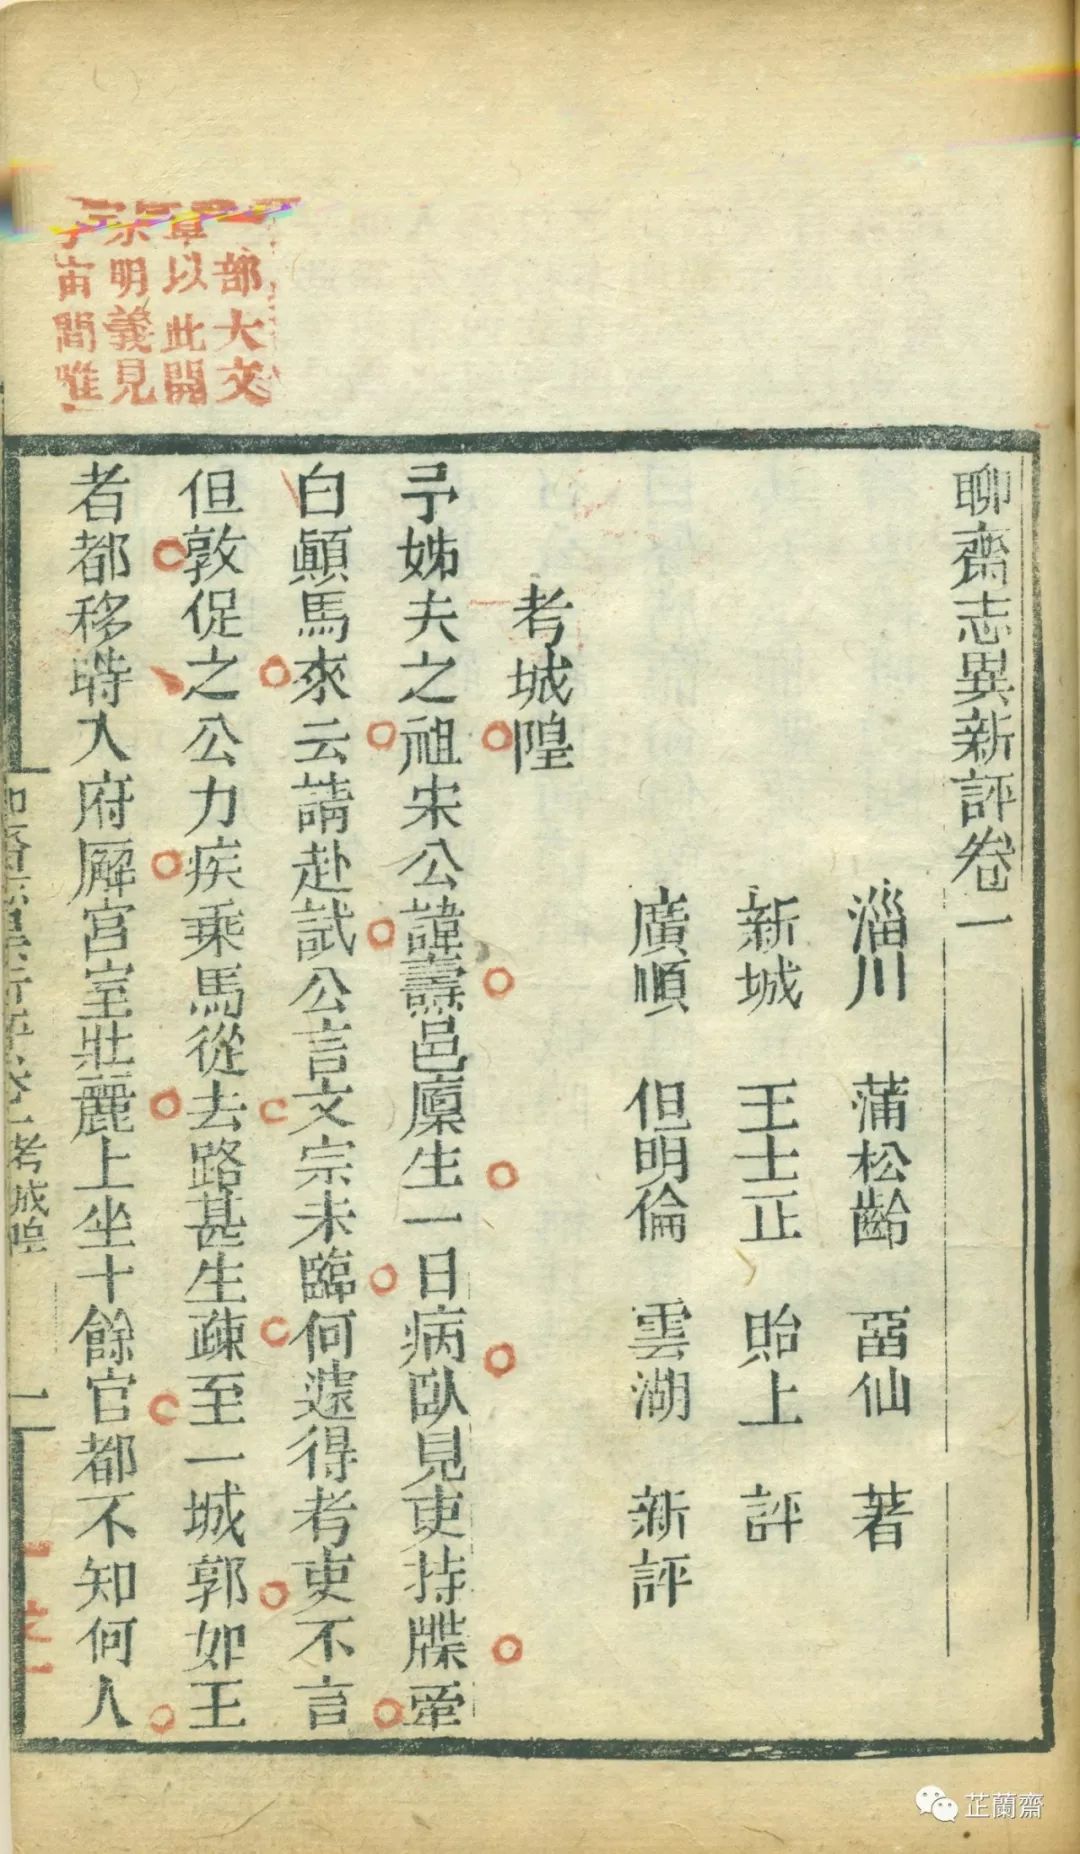 聊齋志異新評卷一
淄川 蒲松齡 畱仙 著
新城 王士正 貽上 評
廣順 但明倫 雲湖 新評
考城隍
予姊夫之祖宋公諱燾邑廩生一日病臥見吏持牒牽
白顚馬來云請赴試公言文宗未臨何遽得考吏不言
但敦促之公力疾乘馬從去路甚生疎至一城郭如王
者都移時入府廨宮室壯麗上坐十餘官都不知何人
部大文
章以此開
宗明義見
宇宙間惟
考城隍
一
芷蘭齋